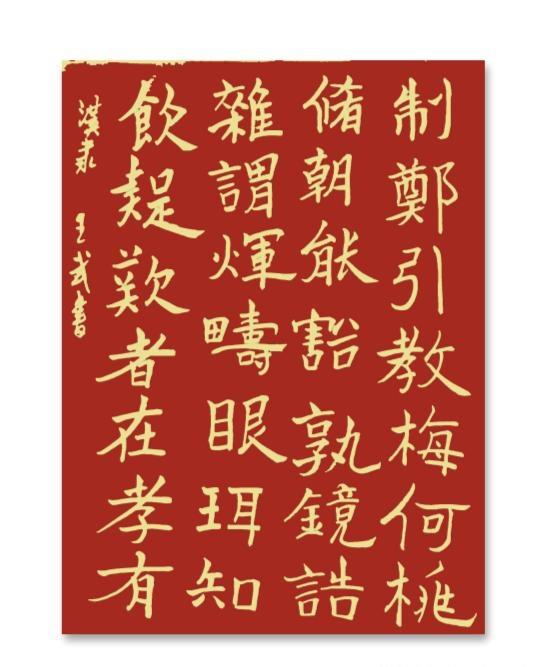 制鄭引教梅何桃
脩朝能豁孰鏡誥
雜謂煇疇眼珥知
飲趧歎者在孝有
漢隶 王武書